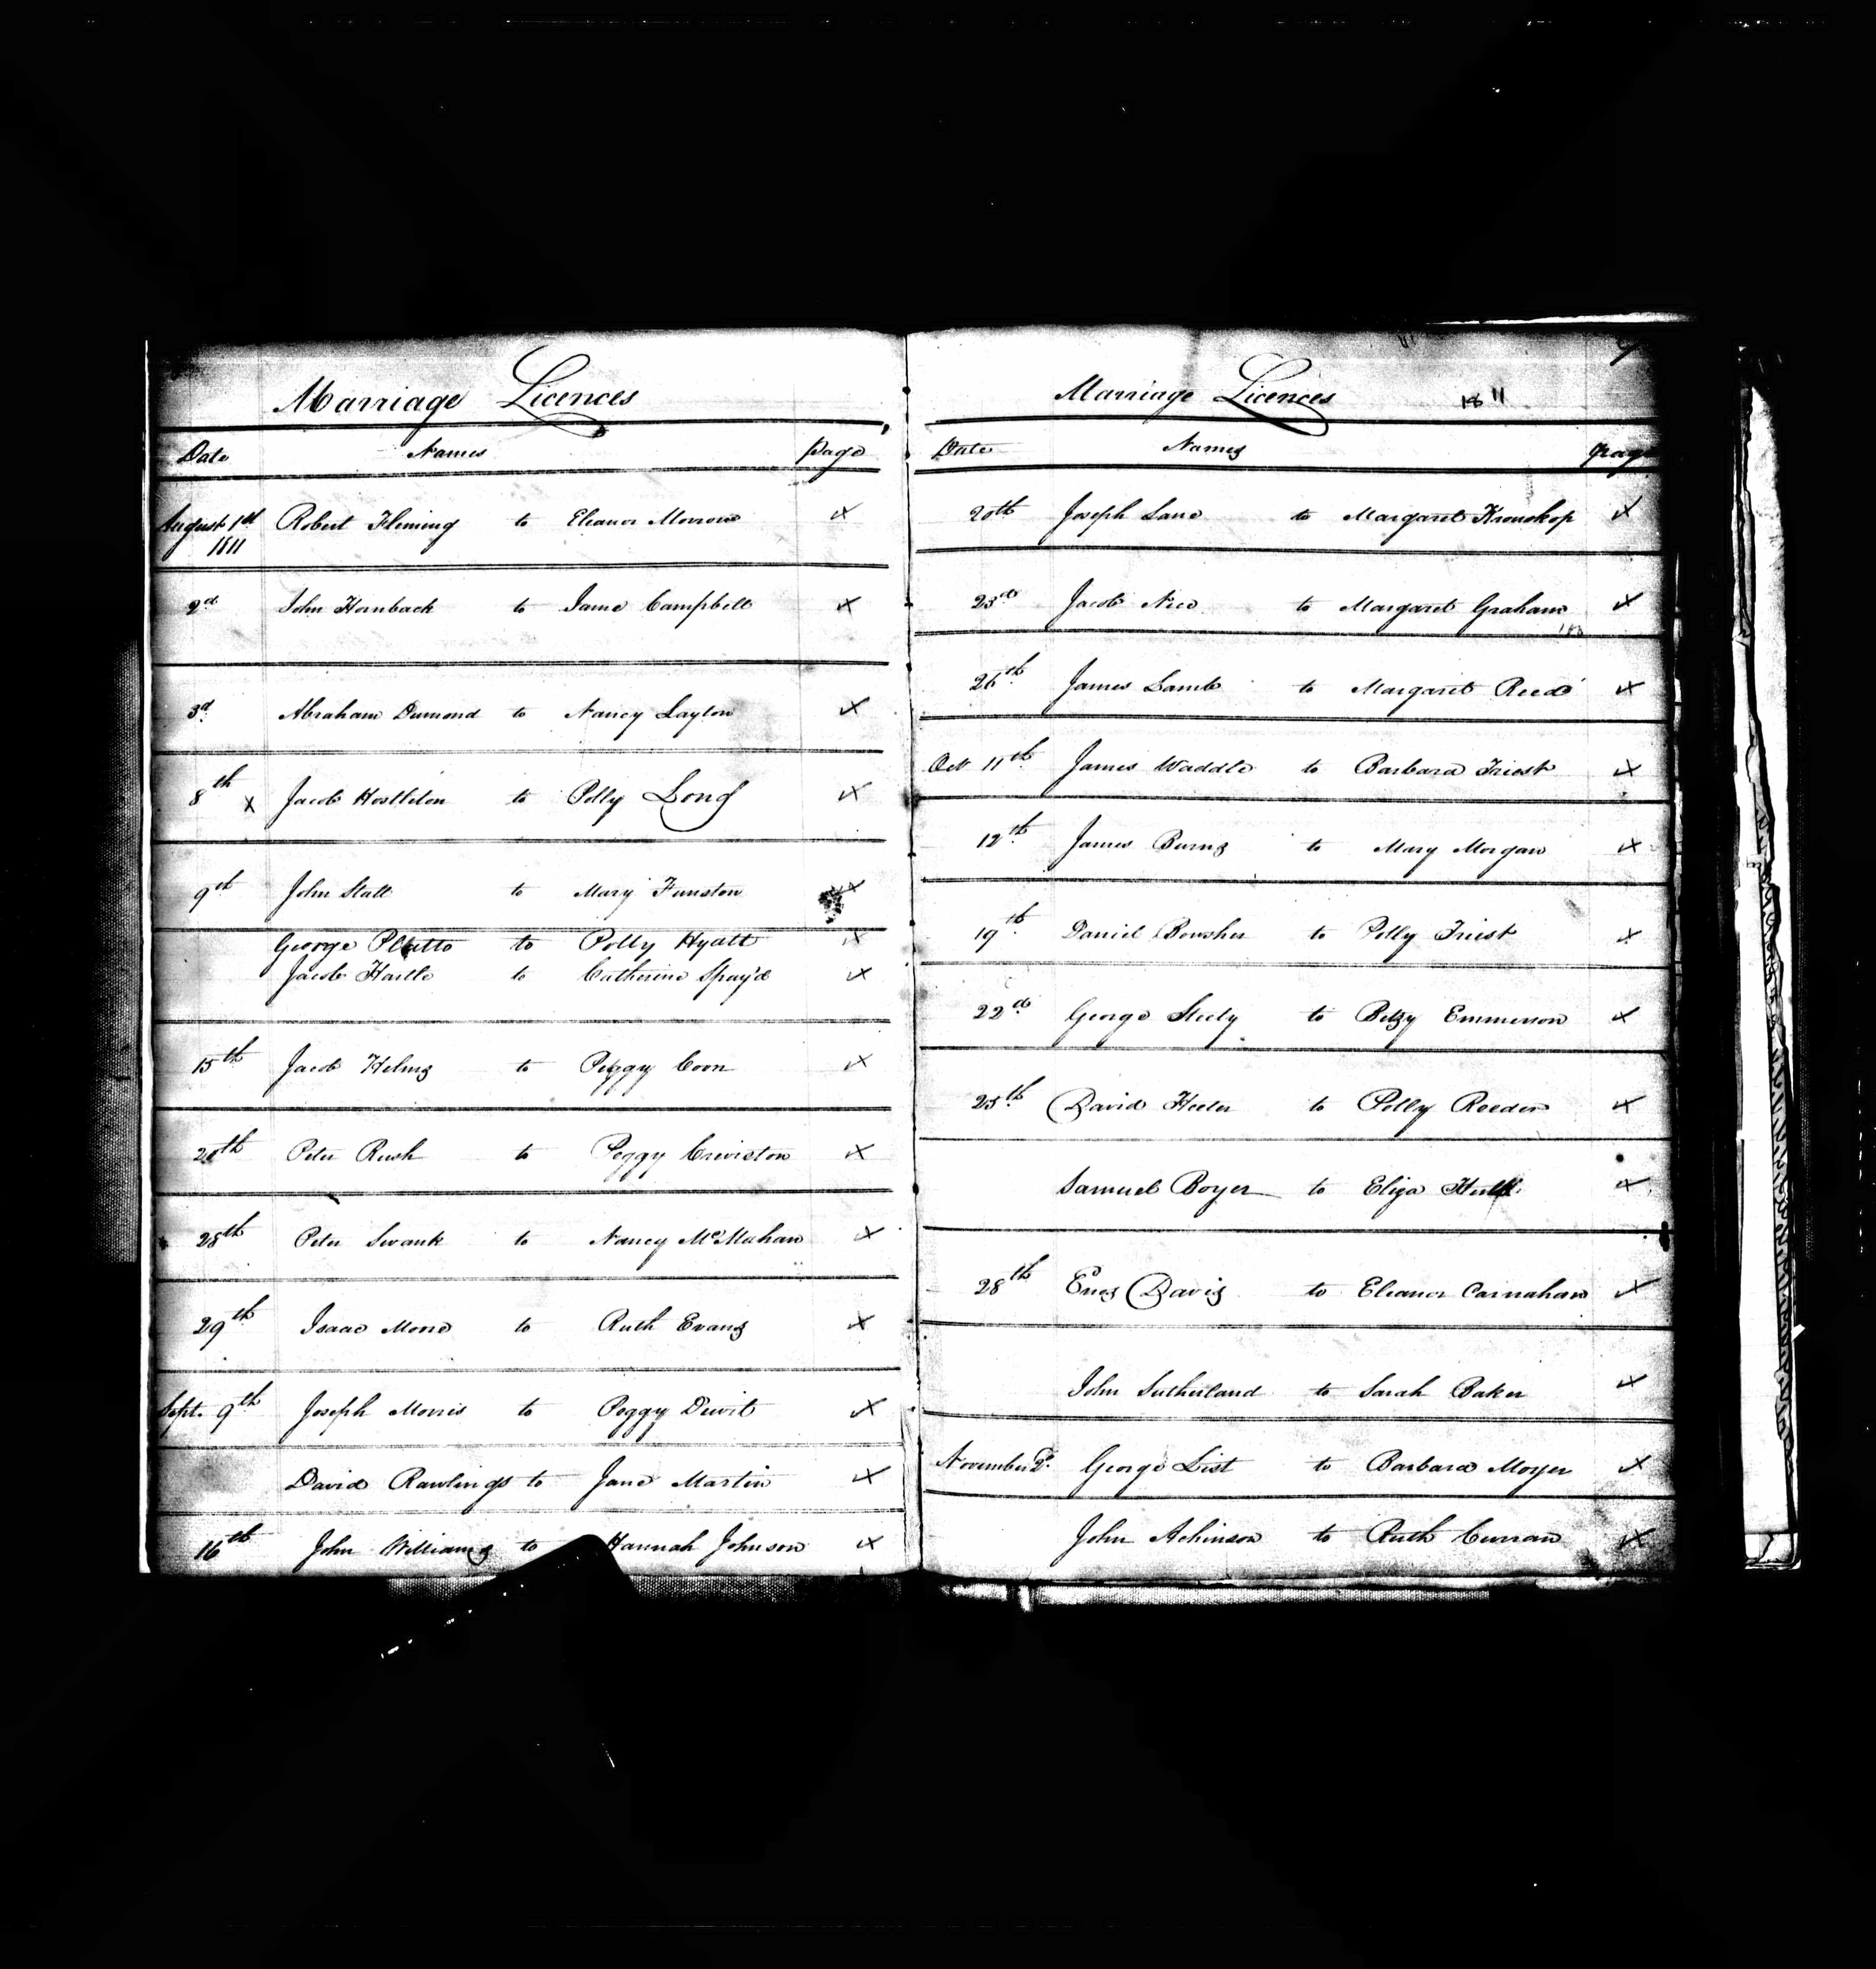 Marriage Licences
Date Names Page
August 1st Robert Fleming to Eleanor Morrow
1811
2d John Hornback to Jane Campbell
3d Abraham Dumond to Nancy Layton
8th x Jacob Hostleton to Polly Long
9th John Stall to Mary Funston
George to Polly Hyatt
Jacob Hartle to Catherine Spay'd
15th Jacob Helms to Peggy Coon
20th Peter Rush to Peggy Creviston
28th Peter Swank to Nancy McMahan
29th Isaac Moore to Ruth Evans
Sept. 9th Joseph Morris to Peggy Dewit
David Rawlings to Jane Martin
16th John Williams to Hannah Johnson
Marriage Licences 1811
Date Names Page
20th Joseph Lane to Margaret Krouskop
23d Jacob Nice to Margaret Graham
26th James Lamb to Margaret Reed
Oct 11th James Waddle to Barbara Triest
12th James Burns to Mary Morgan
19th Daniel Bowsher to Polly Triest
22d George Steely to Betzy Emmerson
25th David Heeter to Polly Reeder
Samuel Boyer to Eliza
28th Enos Davis to Eleanor Carnahan
John Sutherland to Sarah Baker
November 2d. George List to Barbara Moyer
John Achinson to Ruth Curran